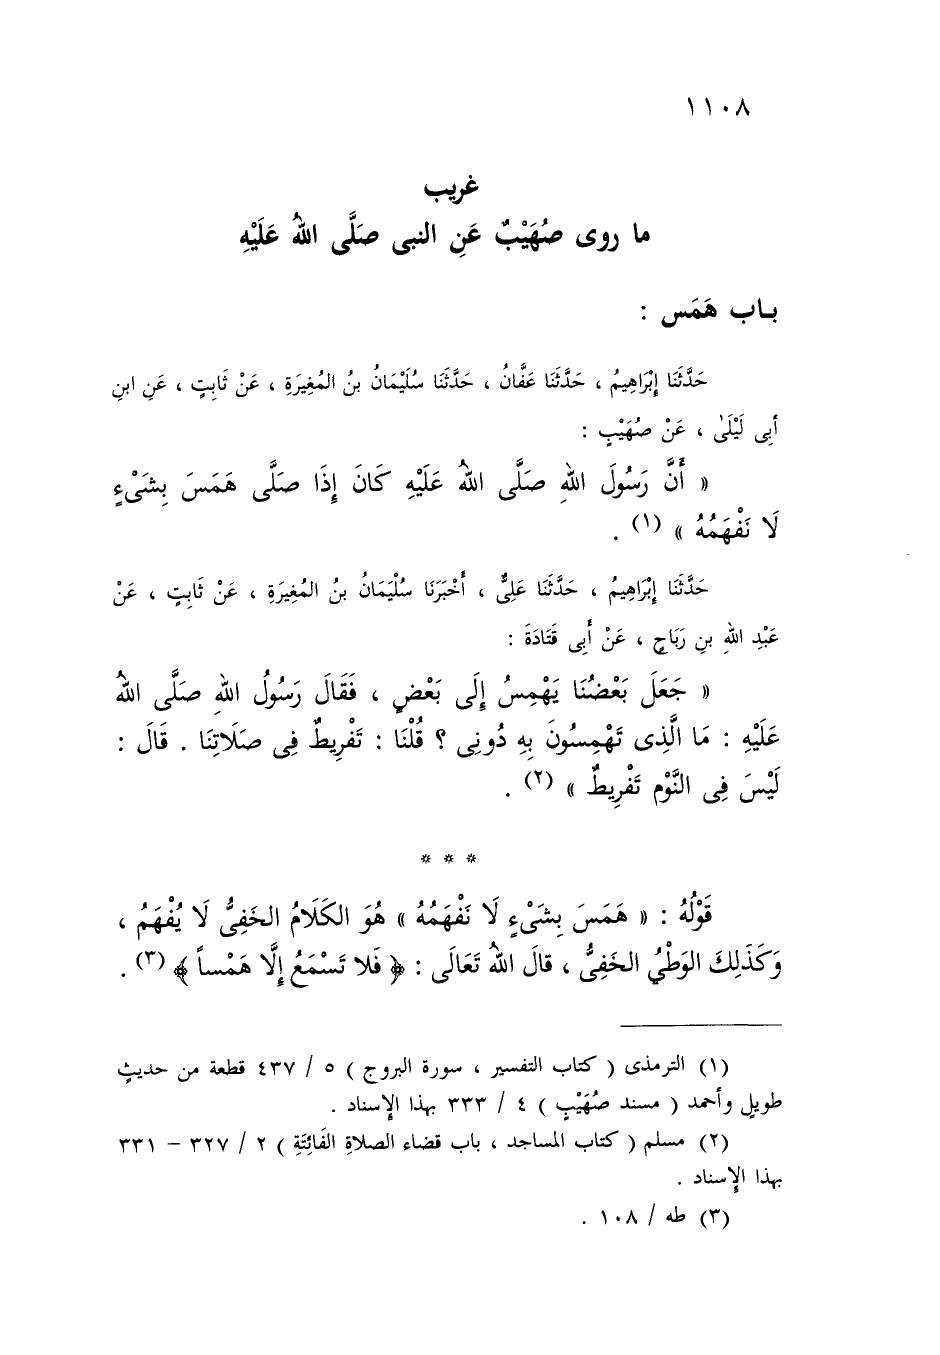 ١١٠٨
غريب
ما روى صُهَيْبٌ عَنِ النبى صَلَّى اللهُ عَلَيْهِ
بـاب هَمَس :
حَدَّثَنَا إِبْرَاهِيمُ ، حَدَّثَنَا عَفَّانُ ، حَدَّثَنَا سُلَيْمَانُ بنُ المُغِيرَةِ ، عَنْ ثَابِتٍ ، عَنِ ابنِ
أبِى لَيْلَىٰ ، عَنْ صُهَيْبٍ :
« أَنَّ رَسُولَ اللهِ صَلَّى اللهُ عَلَيْهِ كَانَ إِذَا صَلَّى هَمَسَ بِشَىْءٍ
لَا نَفْهَمُهُ » (١) .
حَدَّثَنَا إِبْرَاهِيمُ ، حَدَّثَنَا عَلِىٌّ ، أَخْبَرَنَا سُلْيَمَانُ بنُ المُغِيرَةِ ، عَنْ ثَابِتٍ ، عَنْ
عَبْدِ اللهِ بنِ رَبَاحٍ ، عَنْ أَبِى قَتَادَةَ :
« جَعَلَ بَعْضُنَا يَهْمِسُ إِلَى بَعْضٍ ، فَقَالَ رَسُولُ اللهِ صَلَّى اللهُ
عَلَيْهِ : مَا الَّذِى تَهْمِسُونَ بِهِ دُونِى ؟ قُلْنَا : تَفْرِيطٌ فِى صَلَاتِنَا . قَالَ :
لَيْسَ فِى النَّوْمِ تَفْرِيطٌ » (٢) .
* * *
قَوْلُهُ : « هَمَسَ بِشَىْءٍ لَا نَفْهَمُهُ » هُوَ الكَلَامُ الخَفِىُّ لَا يُفْهَمُ ،
وَكَذَلِكَ الوَطْيُ الخَفِىُّ ، قالَ اللهُ تَعَالَى : ﴿ فَلا تَسْمَعُ إِلَّا هَمْساً ﴾ (٣) .
(١) الترمذى ( كتاب التفسير ، سورة البروج ) ٥ / ٤٣٧ قطعة من حديثٍ
طويلٍ وأحمد ( مسند صُهَيْبٍ ) ٤ / ٣٣٣ بهذا الإِسناد .
(٢) مسلم ( كتاب المساجد ، باب قضاء الصلاةِ الفَائِتَةِ ) ٢ / ٣٢٧ – ٣٣١
بهذا الإِسناد .
(٣) طه / ١٠٨ .